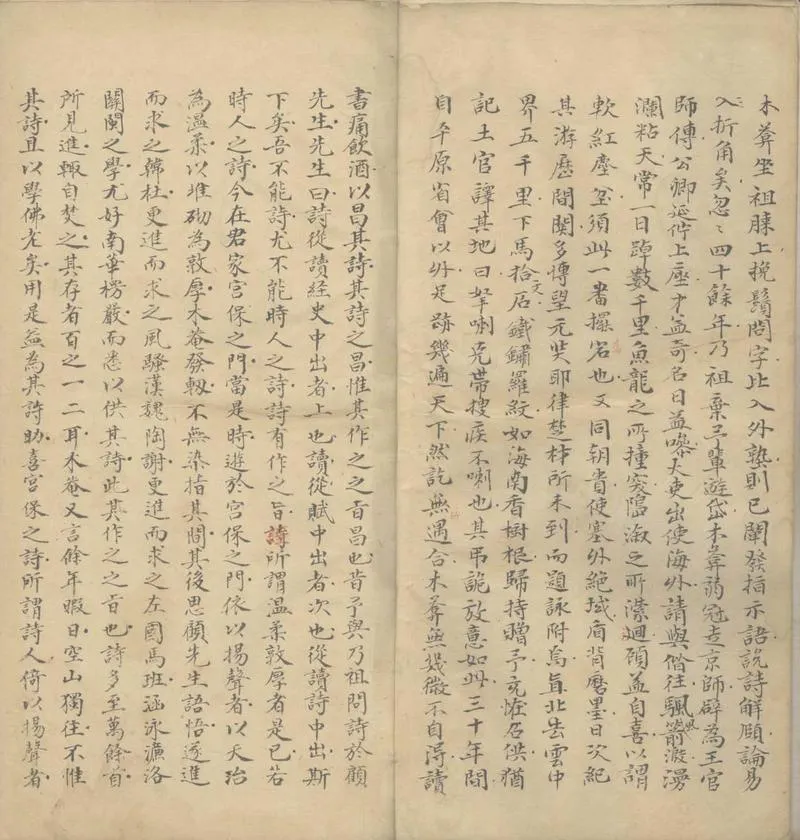 木葊坐祖膝上挽鬚問字比入外塾則已闡發指示語說詩解頤論易
入折角矣忽忽四十餘年乃祖棄予輩遊岱木葊弱冠走京師辟為王官
師傅公卿延佇上座才益奇名日益噪大吏出使海外請與偕往颿箭激漫
瀾粘天常一日踔數千里魚龍之所種突隝溆之所瀠迴碩益自喜以謂
軟紅塵坌須此一番擺宕也又同朝貴使塞外絕域盾背磨墨日次紀
其游歷閒関多博望元奘耶律楚材所未到而題詠附焉直北去雲中
界五千里下馬拾文石鐵鏽羅紋如海南香樹根歸持贈予充怪石供猶
記土官譯其地曰拏喇克帶搜疾不喇也其弔詭放意如此三十年間
自平原省會以外足跡幾遍天下然訖無遇合木葊無幾微不自淂讀
書痛飲酒以昌其詩其詩之昌惟其作之之旨昌也昔予與乃祖問詩於顧
先生先生曰詩從讀経史中出者上也讀從賦中出者次也從讀詩中出斯
下矣吾不能詩尤不能時人之詩詩有作之旨詩所謂温柔敦厚者是已若
時人之詩今在君家宮保之門當是時遊於宮保之門依以揚聲者以夭冶
為温柔以堆砌為敦厚木菴發軔不無染指其間其後思顧先生語悟遂進
而求之韓杜更進而求之風騷漢魏陶謝更進而求之左國馬班涵泳濂洛
關閩之學尤好南華楞嚴而悉以供其詩此其作之之旨也詩多至萬餘首
所見進輙自焚之其存者百之一二耳木菴又言餘年暇日空山獨往不惟
其詩且以學佛老矣用是益為其詩助喜宮保之詩所謂詩人倚以揚聲者